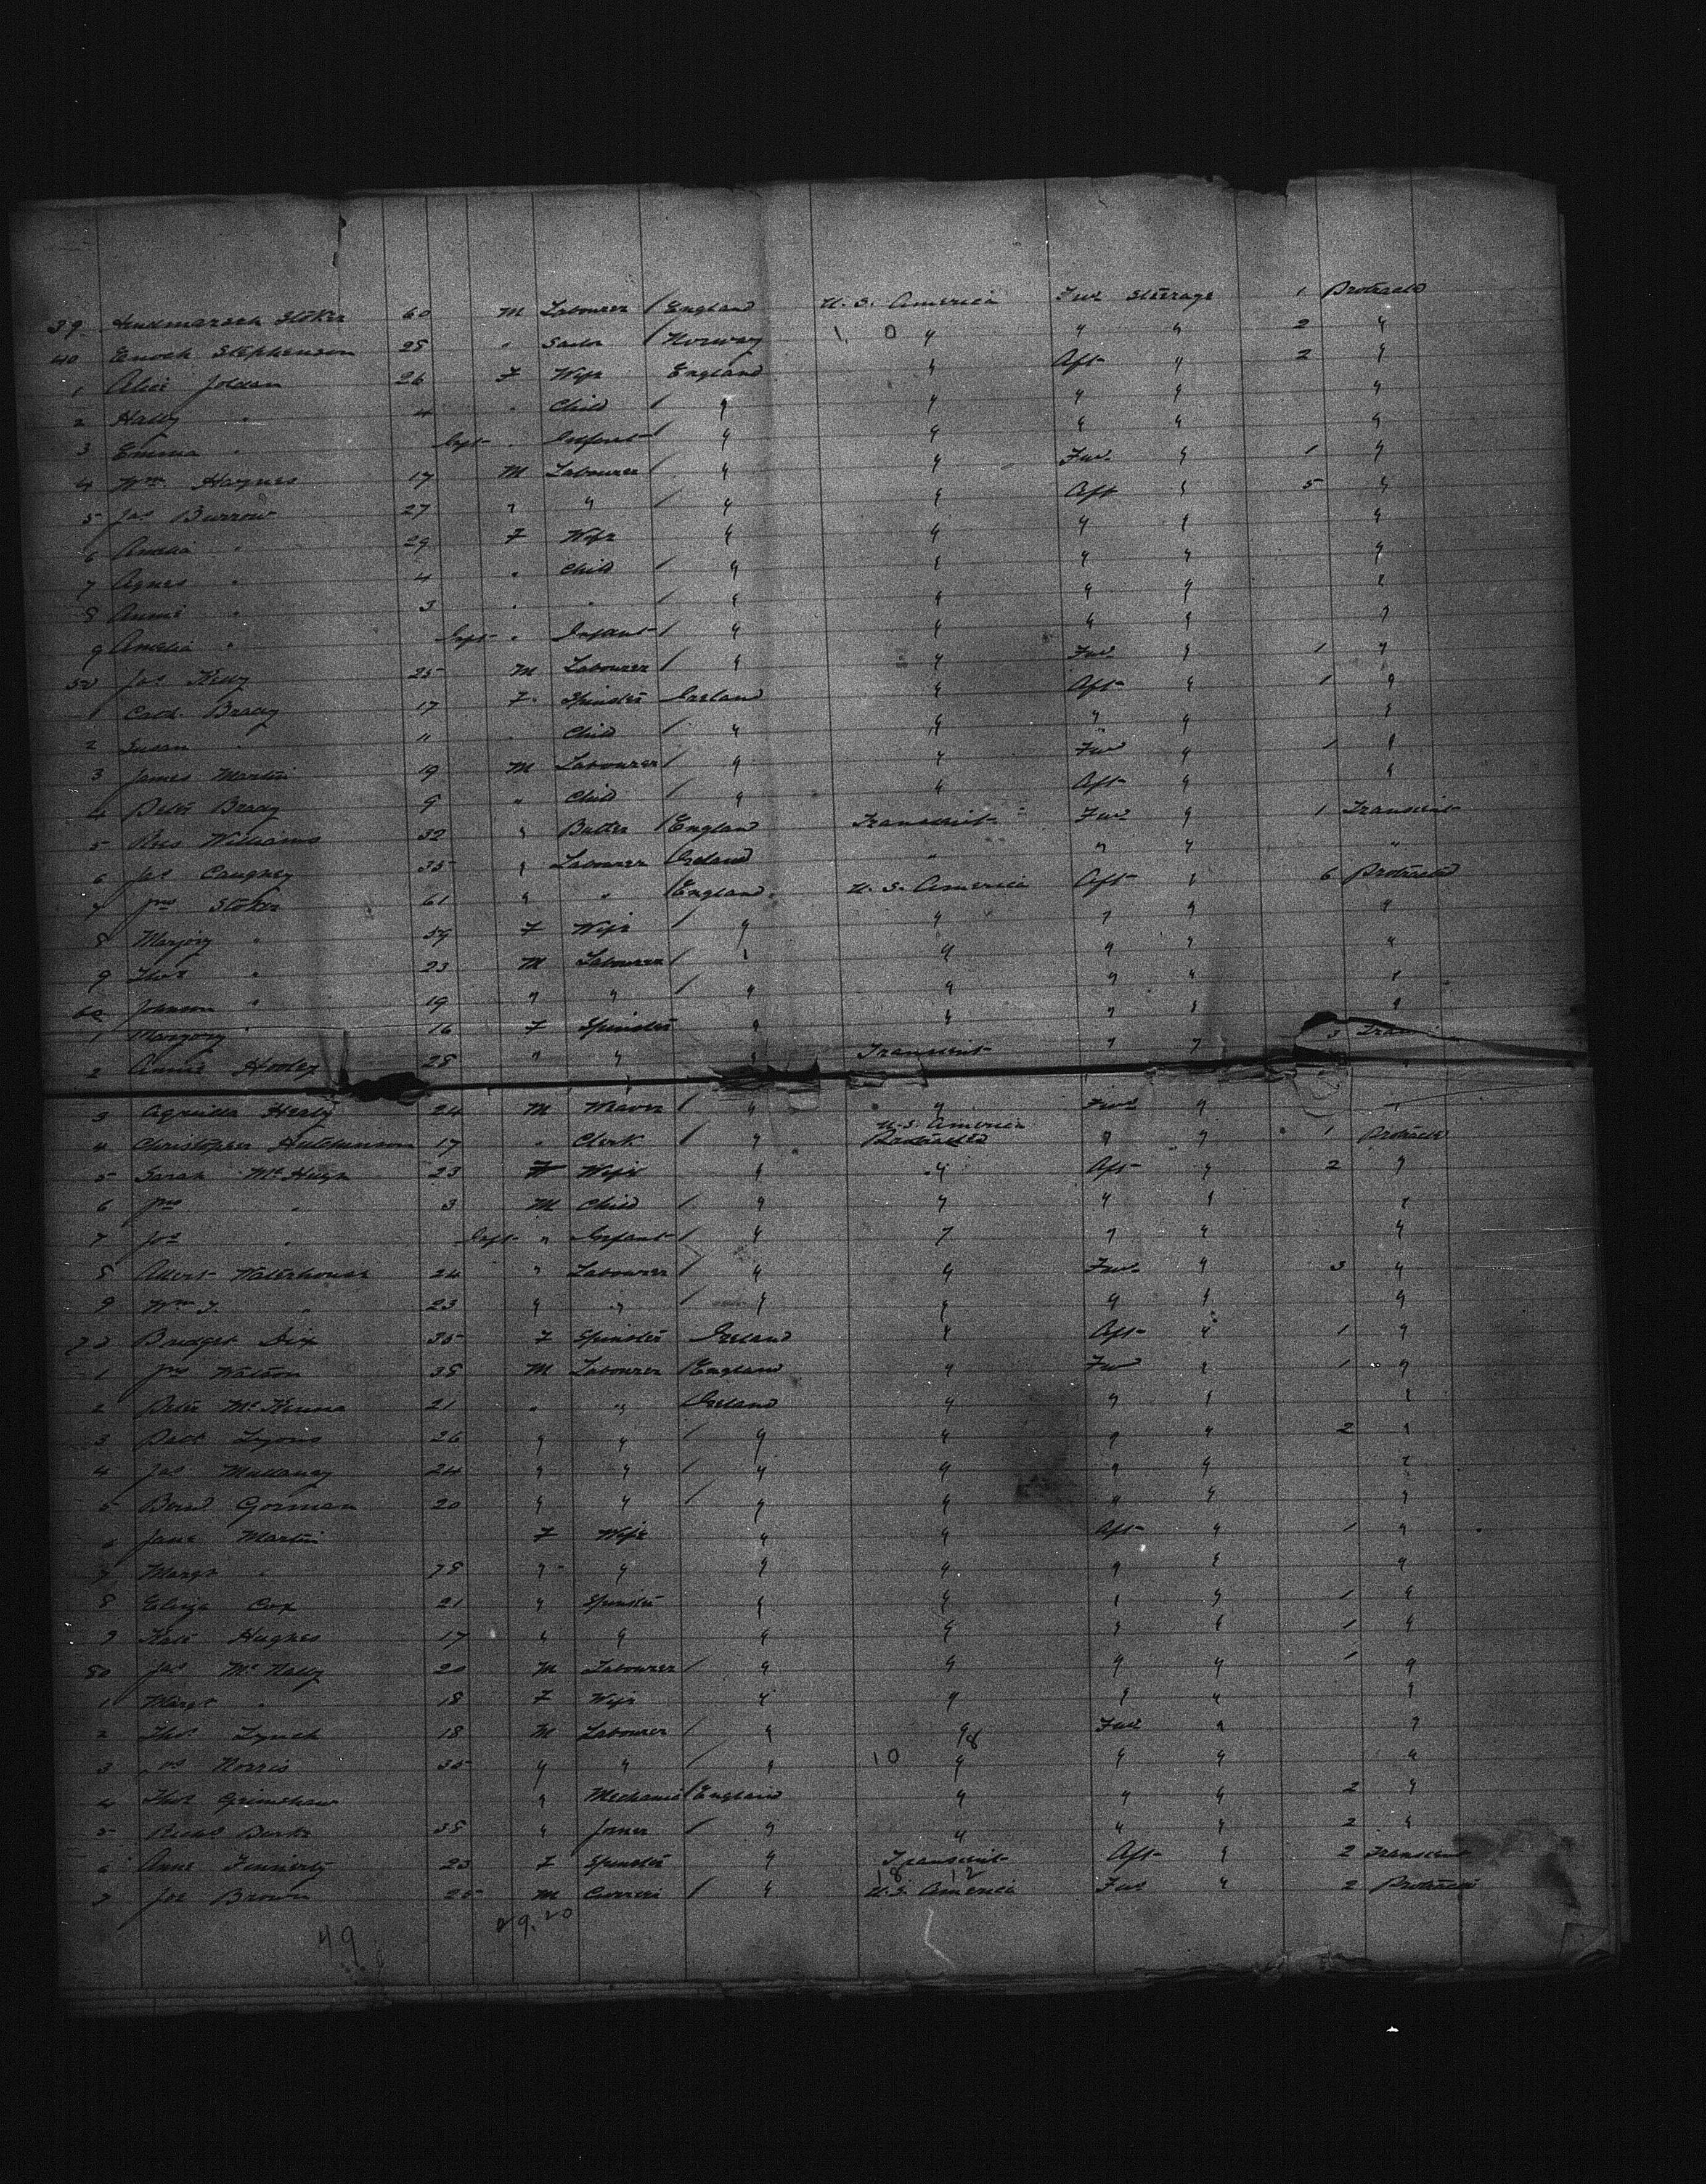 39 Hindmarsch Stoker 60 M Labourer / England U.S. America Fwd Steerage 1 Protracted
40 Enoch Stephenson 25 " Sailor / Norway 1 0 " " " 2 "
1 Alice Jordan 26 F Wife England " Aft " 2 "
2 " 4 " Child / " " " " "
3 Emma " Inft " Infant / " " " " "
4 Wm Haynes 17 M Labourer / " " Fwd " 1 "
5 Jas Burrow 27 " " / " " Aft " 5 "
6 Amelia " 29 F Wife " " " " "
7 Agnes " 4 " Child / " " " " "
8 Annie " 3 " " / " " " " "
9 Amelia " Inft " Infant / " " " " "
50 Jas Kelly 25 M Labourer / " " Fwd " 1 "
1 Cath. Brady 17 F Spinster Ireland " Aft " 1 "
2 Susan " 11 " Child / " " " " "
3 James Martin 19 M Labourer / " " Fwd " 1 "
4 Peter Brady 9 " Child / " " Aft " "
5 Williams 32 " / England Transient Fwd " 1 Transient
6 Jas Caughey 35 " Labourer / Ireland " " " "
7 Jno Stoker 61 " " / England U.S. America Aft " 6 Protracted
8 Marjory " 59 F Wife / " " " " "
9 Thos " 23 M Labourer / " " " " "
60 Johnson " 19 " " / " " " " "
1 Marjory " 16 F Spinster " " " " "
2 Annie Hooley 28 " " " Transient " " 3
3 Aquilla Healy 24 M / " " Fwd " "
4 Christopher Hutchinson 17 " Clerk / " U.S. America Protracted " " 1 Protracted
5 Sarah McHugh 23 F Wife " " Aft " 2 "
6 Jno " 3 M Child / " " " " "
7 Jos " Inft " Infant / " " " " "
8 Albert Waterhouse 24 " Labourer / " " Fwd " 3 "
9 Wm J. " 23 " " / " " " " "
70 Bridget Dix 35 F Spinster Ireland " Aft " 1 "
1 Jno Watson 38 M Labourer / England " Fwd " 1 "
2 Peter McKenna 21 " " Ireland " " " "
3 Patk Lyons 26 " " / " " " " 2 "
4 Jas Mullaney 24 " " / " " " " "
5 Bernd Gorman 20 " " / " " " " "
6 Jane Martin F Wife " " Aft " 1 "
7 Margt " 78 " " " " " " "
8 Eliza Cox 21 " Spinster " " " " 1 "
9 Kate Hughes 17 " " " " " " 1 "
80 Jas McNally 20 M Labourer / " " " " 1 "
1 Margt " 18 F Wife " " " " "
2 Thos Lynch 18 M Labourer / " " Fwd " "
3 Norris 35 " " / " 10 " " " "
4 Thos Grimshaw " Mechanic / England " " " 2 "
5 Richd Burke 38 " Joiner / " " " " 2 "
6 Anne Finnerty 23 F Spinster " Transient Aft " 2 Transient
18 12
7 Joe Brown 25 M / " U.S. America Fwd " 2 Protracted
49 29.20